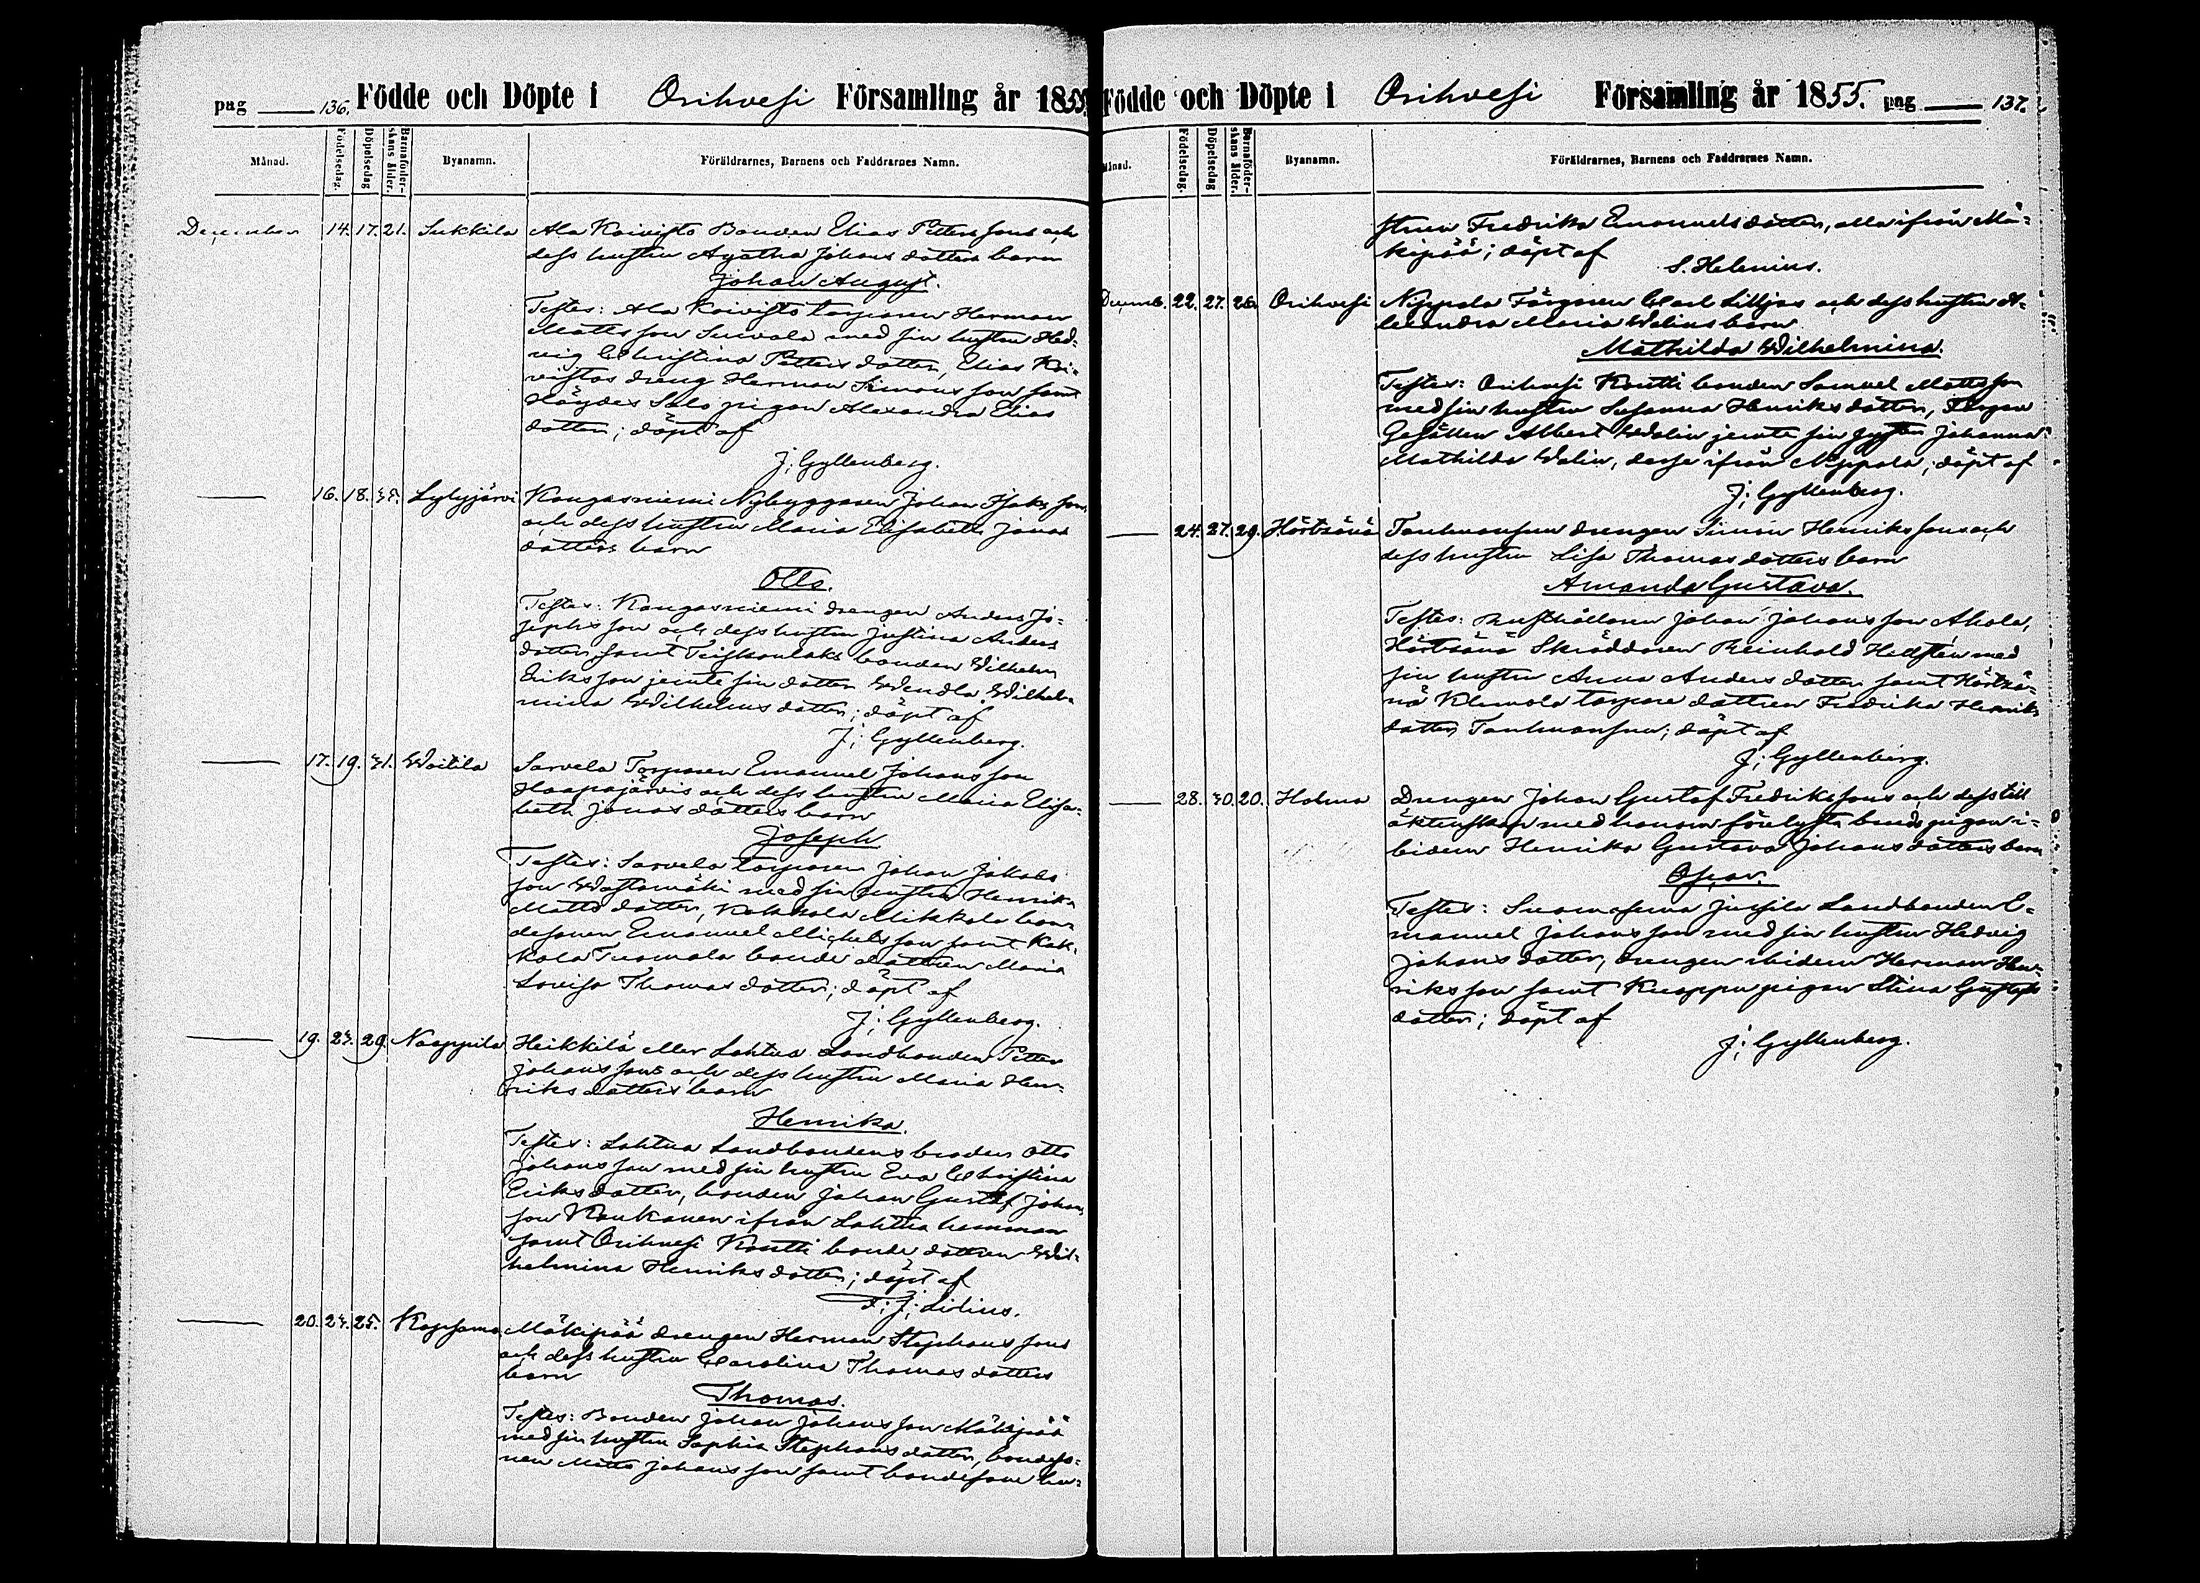 pag 136. Födde och Döpte i Orihvesi Församling år 1855.
Månad. Födelsedag. Döpelsedag Barnaföderskans ålder. Byanamn. Föräldrarnes, Barnens och Faddrarnes Namn.
December 14. 17. 21. Sukkila Ala Koivisto Bonden Elias Petters sons och
dess hustru Agatha Johans dotters barn
Johan August.
Testes: Ala Koivisto torparen Herman
Matts son Survola med sin hustru Hed-
vig Christina Petters dotter, Elias Koi-
vistos dreng Herman Simons son samt
Höydes Salo pigan Alexandra Elias
dotter; döpt af
J; Gyllenberg.
16. 18. 35. Lylyjärvi Kangasniemi Nybyggaren Johan Isaks sons
och dess hustru Maria Elisabeth Jonas
dotters barn
Otto.
Testes: Kangasniemi drengen Anders Jo-
sephs son och dess hustru Justina Anders
dotter samt Teiskonlaks bonden Wilhelm
Eriks son jemte sin dotter Wendla Wilhel-
mina Wilhelms dotter; döpt af
J; Gyllenberg.
17. 19. 31. Woitila Sarvela Torparen Emanuel Johans son
Haapajärvis och dess hustru Maria Elisa-
beth Jonas dotters barn
Joseph
Testes: Sarvela torparen Johan Jakobs
son Wastamäki med sin hustru Henrika
Matts dotter, Kokkola Mikkola bon-
desonen Emanuel Michels son samt Kok-
kola Tuomola bonde dottren Maria
Lovisa Thomas dotter; döpt af
J; Gyllenberg.
19. 23. 29. Naappila Heikkilä eller Lahtua Landbonden Petter
Johans sons och dess hustru Maria Hen-
riks dotters barn
Henrika.
Testes: Lahtua Landbondens broder Otto
Johans son med sin hustru Eva Christina
Eriks dotter, bonden Johan Gustaf Johans
son Kaukanen ifrån Lahtua hemman
samt Orihvesi Koutti bonde dottren Wil-
helmina Henriks dotter; döpt af
F; J; Lilius.
20. 23. 25. Kopsamo Mäkipää drengen Herman Stephans sons
och dess hustru Carolina Thomas dotters
barn
Thomas.
Testes: Bonden Johan Johans son Mäkipää
med sin hustru Sophia Stephans dotter, bondeso-
nen Matts Johans son samt bondesone hu-
Födde och Döpte i Orihvesi Församling år 1855. pag 137.
Månad. Födelsedag. Döpelsedag Barnaföderskans ålder. Byanamn. Föräldrarnes, Barnens och Faddrarnes Namn.
strun Fredrika Emanuels dotter, alla ifrån Mä-
kipää; döpt af
S. Helenius.
Decemb. 22. 27. 26. Orihvesi Nippala Färgaren Carl Liljas och dess hustru A-
lexandra Maria Walins barn
Mathilda Wilhelmina.
Testes: Orihvesi Koutti bonden Samuel Matts son
med sin hustru Susanna Henriks dotter, Färgare
Gesällen Albert Walin jemte sin syster Johanna
Mathilda Walin, desse ifrån Nippala; döpt af
J; Gyllenberg.
24. 27. 29. Hörtsänä Tanhuansuu drengen Simon Henriks sons och
dess hustru Lisa Thomas dotters barn
Amanda Gustava.
Testes: Rusthållaren Johan Johans son Ahola,
Hörtsänä Skräddaren Reinhold Hellstén med
sin hustru Anna Anders dotter samt Hörtsä-
nä Klemola torpare dottren Fredrika Henriks
dotter Tanhuansuu; döpt af
J; Gyllenberg.
28. 30. 20. Holma Drengen Johan Gustaf Fredriks sons och dess till
äktenskap med honom förelysta brud pigan i-
bidem Henrika Gustava Johans dotters barn
Oscar.
Testes: Jussila Landbonden E-
manuel Johans son med sin hustru Hedvig
Johans dotter, drengen ibidem Herman Hen-
riks son samt pigan Stina Gustafs
dotter; döpt af
J; Gyllenberg.